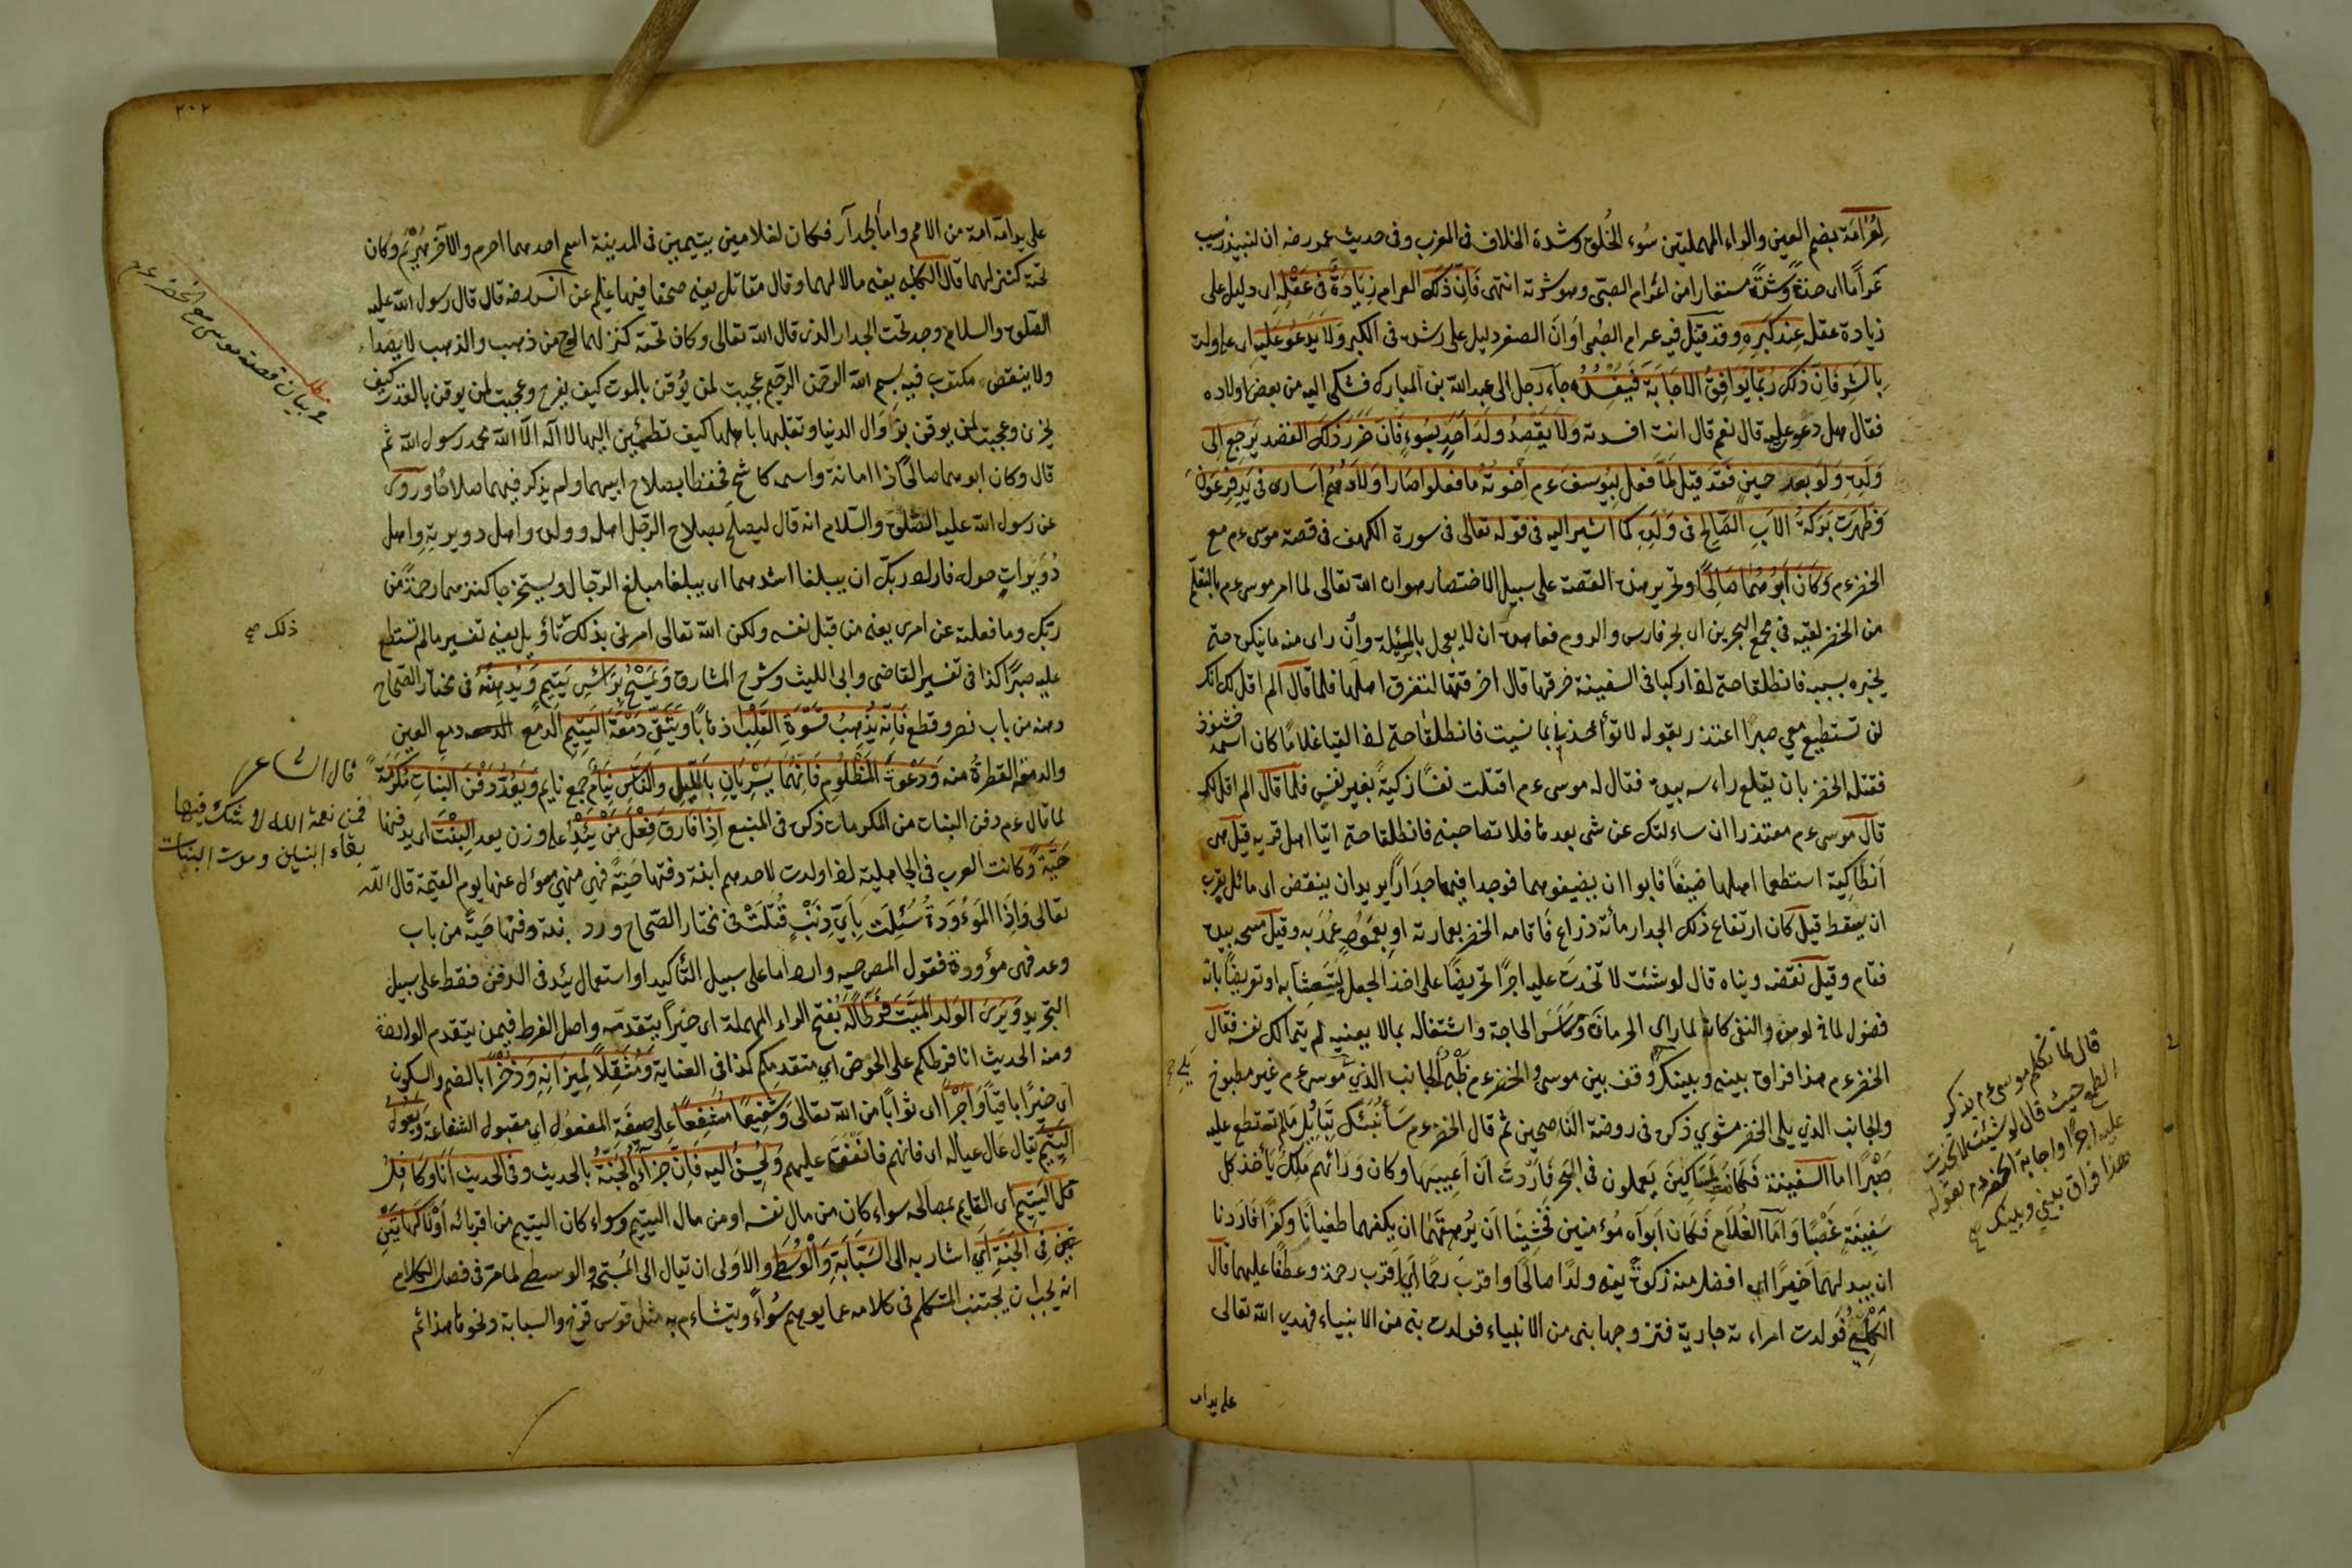 لعُرَامَة بضم العين والراء المهملتين سُوء الخُلوق وشدة الخلاف فى المغرب وفى حديث عمر رضه ان لنبيذ زبيب
عَرامًا اى حدة وشدةً مستعار من اعُرام الصبّى وهو شرته انتهى فَاِنَّ ذَلِكَ العرام زِيَادَةٌ فى عَقْلِهِ اى دليل على
زيادة عقله عِنْدَ كِبَرِهِ وقد قيل فيه عرام الصبّى اوَان الصغر دليل على رشده فى الكبر وَلاَ يَدْعُو عَلَيهِ اى على ولده
بِالشَّرِ فَاِنَّ ذَلِكَ رُبَّمَا يُوَافِقُ الاجَابَةَ فَيُفْسِدُهُ جاء رجل الى عبد الله بن المبارك فشكى اليه من بعض اولاده
فقال هل دعوت عليه قال نعم قال انت افسدته وَلاَ يَقْصِدُ وَلَدَ اَحَدٍ بِسُوءٍ فَاَنَّ ضَرَرَ ذَلِكَ القصد يَرجِع الى
وَلَدِهِ وَلَو بَعدَ حِينٍ فَقَد قِيلَ لَمَّا فَعَل بِيُوسفَ ءم اِخْوتُهُ مَا فعلوا صَارَ اَولاَدُهُم اَسَارى فى يَدِ فِرعَونَ
وَظَهرَت بَرَكَةُ الاَبِ الصَّالِحِ فى وَلَدِهِ كما اشير اليه فى قوله تعالى فى سورة الكهف فى قصة موسى ءم مع
الخضر ءم وَكَانَ اَبُوهُمَا صَالِحًا وتحرير هذه القصة على سبيل الاختصار هو ان الله تعالى لما امر موسى ءم بالتعلّم
من الخضر لقيه فى مجمع البحرين اى بحر فارس والروم فعاهده ان لا يعجل بالمسئلة وان راى منه ما ينكره حتى
يخبره بسببه فانطلقا حتى اذا ركبا فى السفينة خرقها قال اخرقتها لتغرق اهلها فلما قال الم اقل لك انك
لن تستطيع معى صبرًا اعتذر بقوله لا تؤاخذنى بما نسيت فانطلقا حتى اذا لقيا غلامًا كان اسمه
فقتله الخضر بان يقلع راءسه بيده فقال له موسى ءم اقتلت نفسًا زكيّةً بغير نفس فلما قال الم اقل لك
قال موسى ءم معتذرا ان ساءلتك عن شى بعدها فلا تصاحبنى فانطلقا حتى اتيا اهل قريه قيل هى
اَنطاكِية استطعما اهلها ضيفًا فابوا ان يضيفوهما فوجدا فيها جدارًا يريد ان ينقض اى مائل يقرب
ان يسقط قيل كان ارتفاع ذلك الجدار مأة ذراع فَاقامه الخضر بعمارته او بعمود عمَدَ به وقيل مسحه بيده
فقام وقيل نقضه وبناه قال لو شئت لا تخذتَ عليه اجرًا تحريضًا على اخذ الجعل لِيَتَعشَّيَا به او تعريضًا بانّه
فضول لما فى لو من النفى كانه لما راى الحرمان وَمَسَاسَ الحاجة واشتغاله بمالا يعنيه لم يتمالك نفسه فقال
الخضر ءم هذا فراق بينى وبينك وقف بين موسى والخضر ءم ظبىٌ الجانب الذي موسى ءم غير مطبوخ
والجانب الذي يلى الخضر مشوي ذكره فى روضة الناصحين ثم قال الخضر ءم سَأُنَبِّئُكَ بِتَأوِيلِ مَا لم تستطع عليه
صَبْرًا اما السفينة فَكَانَت لِمَسَاكِينَ يَعملون فى البَحرِ فَاَرَدْتُ اَن اَعِيبَهَا وكان وَرَائهم مَلِكٌ يأخذ كل
سَفِينَةٍ غَصْبًا وَاَمَّا الغُلاَم فَكان اَبَوَاه مُؤمنين فَخَشِينَا اَن يُرهِقَهُمَا ان يكلفهما طغيانًا وكفرًا فَاردنا
ان يبدلهمَا خيرًا اى افضل منه زكوةً يعنى ولدًا صالحًا واقربَ رحمًا اى اقرب رحمة وعطفًا عليهما قال
الكلبى فولدت امراءته جارية فتزوجها بنى من الانبياء فولدت بنى من الانبياء فهدى الله تعالى
على يداه
قال لما تكلم موسى ءم بذكر
الطمع حيث قال لو شئت لاتخذت
عليه اجرًا واجابه الخضر ءم بقوله
هذا فراق بينى وبينك صح
يلى صح
٢٠٢
على يداه امة من الامم واما الجدار فكان لغلامين يتيمين فى المدينة اسم احدهما احرم والآخر هُرَيْم وكان
تحته كنز لهما قال الكلبى يعنى مالا لهما وقال مقاتل يعنى صحفا فيها علم عن انس رضه قال قال رسول الله عليه
الصّلوة والسلام وجد تحت الجدار الذى قال الله تعالى وكان تحته كنز لهما لوح من ذهب والذهب لا يصداء
ولا ينقص مكتوب فيه بسم الله الرحمن الرحيم عجبت لمن يُوقن بالموت كيف يفرح وعجبت لمن يوقن بالقدر كيف
يحزن وعجبت لمن يوقن بزوال الدنيا وتقلبها باهلها كيف تطمئنّ اليها لا اله الا الله محمد رسول الله ثم
قال وكان ابوهما صالحًا ذا امانة واسمه كاشح فحفظا بصلاح ابيهما ولم يذكر فيهما صلاحًا وروى
عن رسول الله عليه الصّلوة والسّلام انه قال ليصلح بصلاح الرّجل اهله وولده واهل دويرته واهل
دُوَيرَاتٍ حوله فاراد ربّك ان يبلغا اشدهما اى يبلغا مبلغ الرّجال ويستخرجا كنزهما رحمةً من
ربّك وما فعلته عن امرى يعنى من قبل نفسه ولكن الله تعالى امرنى بذلك تأويل يعنى تفسير ما لم تستطع
عليه صبرًا كذا فى تفسير القاضى وابى الليث وشرح المشارق وَيَمْسَحُ بِرَأْسِ يَتيمٍ وَيَدْهِنُهُ فى مختار الصّحاح
دهنه من باب نصر وقطع فَاِنَّهُ يُذْهِبُ قَسْوَةَ القَلْبِ اذهابًا وَيَتَّقى دَمْعَةَ اليَتِيمِ الدمع دمع العين
والدمعة القطرةُ منه وَدَعوةَ المَظْلُومِ فَاِنَّهُمَا يَسْرِيَانِ بِاللَّيلِ والنَّاسُ نِيَامٌ جمع نايم وَيَعُدُّ دَفْنَ البَنَاتِ مَكرُمَةً
لما قال ءم دفن البنات من المكرمات ذكره فى المنبع اِذَا فَارَقَ فِعْلَ مَنْ يَئِدُ على وزن يعد البِنْتَ اى يدفنها
حَيّةً وكانت العرب فى الجاهلية اذا ولدت لاحدهم ابنة دفنها حَيّةً فهى منهى مسؤل عنها يوم القيمة قال الله
تعالى وَاِذَا المَوْءُودَةُ سُئِلَت بِاَىِّ ذَنْبٍ قُتِلَتْ فى مختار الصّحاح وءد بنته دفنها حَيّةً من باب
وعد فهى مؤودة فقول المص حيه وارد اما على سبيل التّأكيد او استعمال يئد فى الدفن فقط على سبيل
التجريد وَيَرَى الوَلَدَ المَيّتَ فَرَطًا لَهُ بفتح الراء المهملة اى خيرًا يتقدمه واصل الفرط فيمن يتقدم الواردة
ومنه الحديث انا فرطكم على الحوض اي متقدمكم كذا فى العناية وَمُثَقِّلاً لِمِيزَانِهِ وَذُخْرًا بالضم والسكون
اى خيرًا باقيًا وَاَجْرًا اى ثوابًا من الله تعالى وَشَفِيعًا مُشَفَّعًا على صيغة المفعول اي مقبول الشفاعة وَيَعُولُ
اليَتِيمَ يقال عال عياله اى قاتهم وانفق عليهم وَيُحْسِنُ اليه فَاِنَّ جَزَاءَهُ الجَنَّةُ بالحديث وفى الحديث اَنَا وَكَافِلُ
كفل اليَتِيمِ اى القايم بمصالحه سواء كان من مال نفسه او من مال اليتيم وسواء كان اليتيم من اقربائه اَوْلا كَهَاتَيْنِ
فِى الجَنَّةِ اَىْ اشار به الى السَّبَّابَةِ وَالْوُسْطَى والاَولى ان يقال الى المُسَبّحة والوسطى لما مرّ فى فصل الكلام
انه يجب ان يجتنب المتكلم فى كلامه عما يوهم سُوءًا ويتشاءم به مثل قوس قزح والسبابة ونحوها هذا ثم
مطلب
فى بيان قصة موسى مع الخضر ءم
ذلك صح
قال الشاعر
فمن نعمة الله لا شك فيها
بقاء البنين وموت البنات